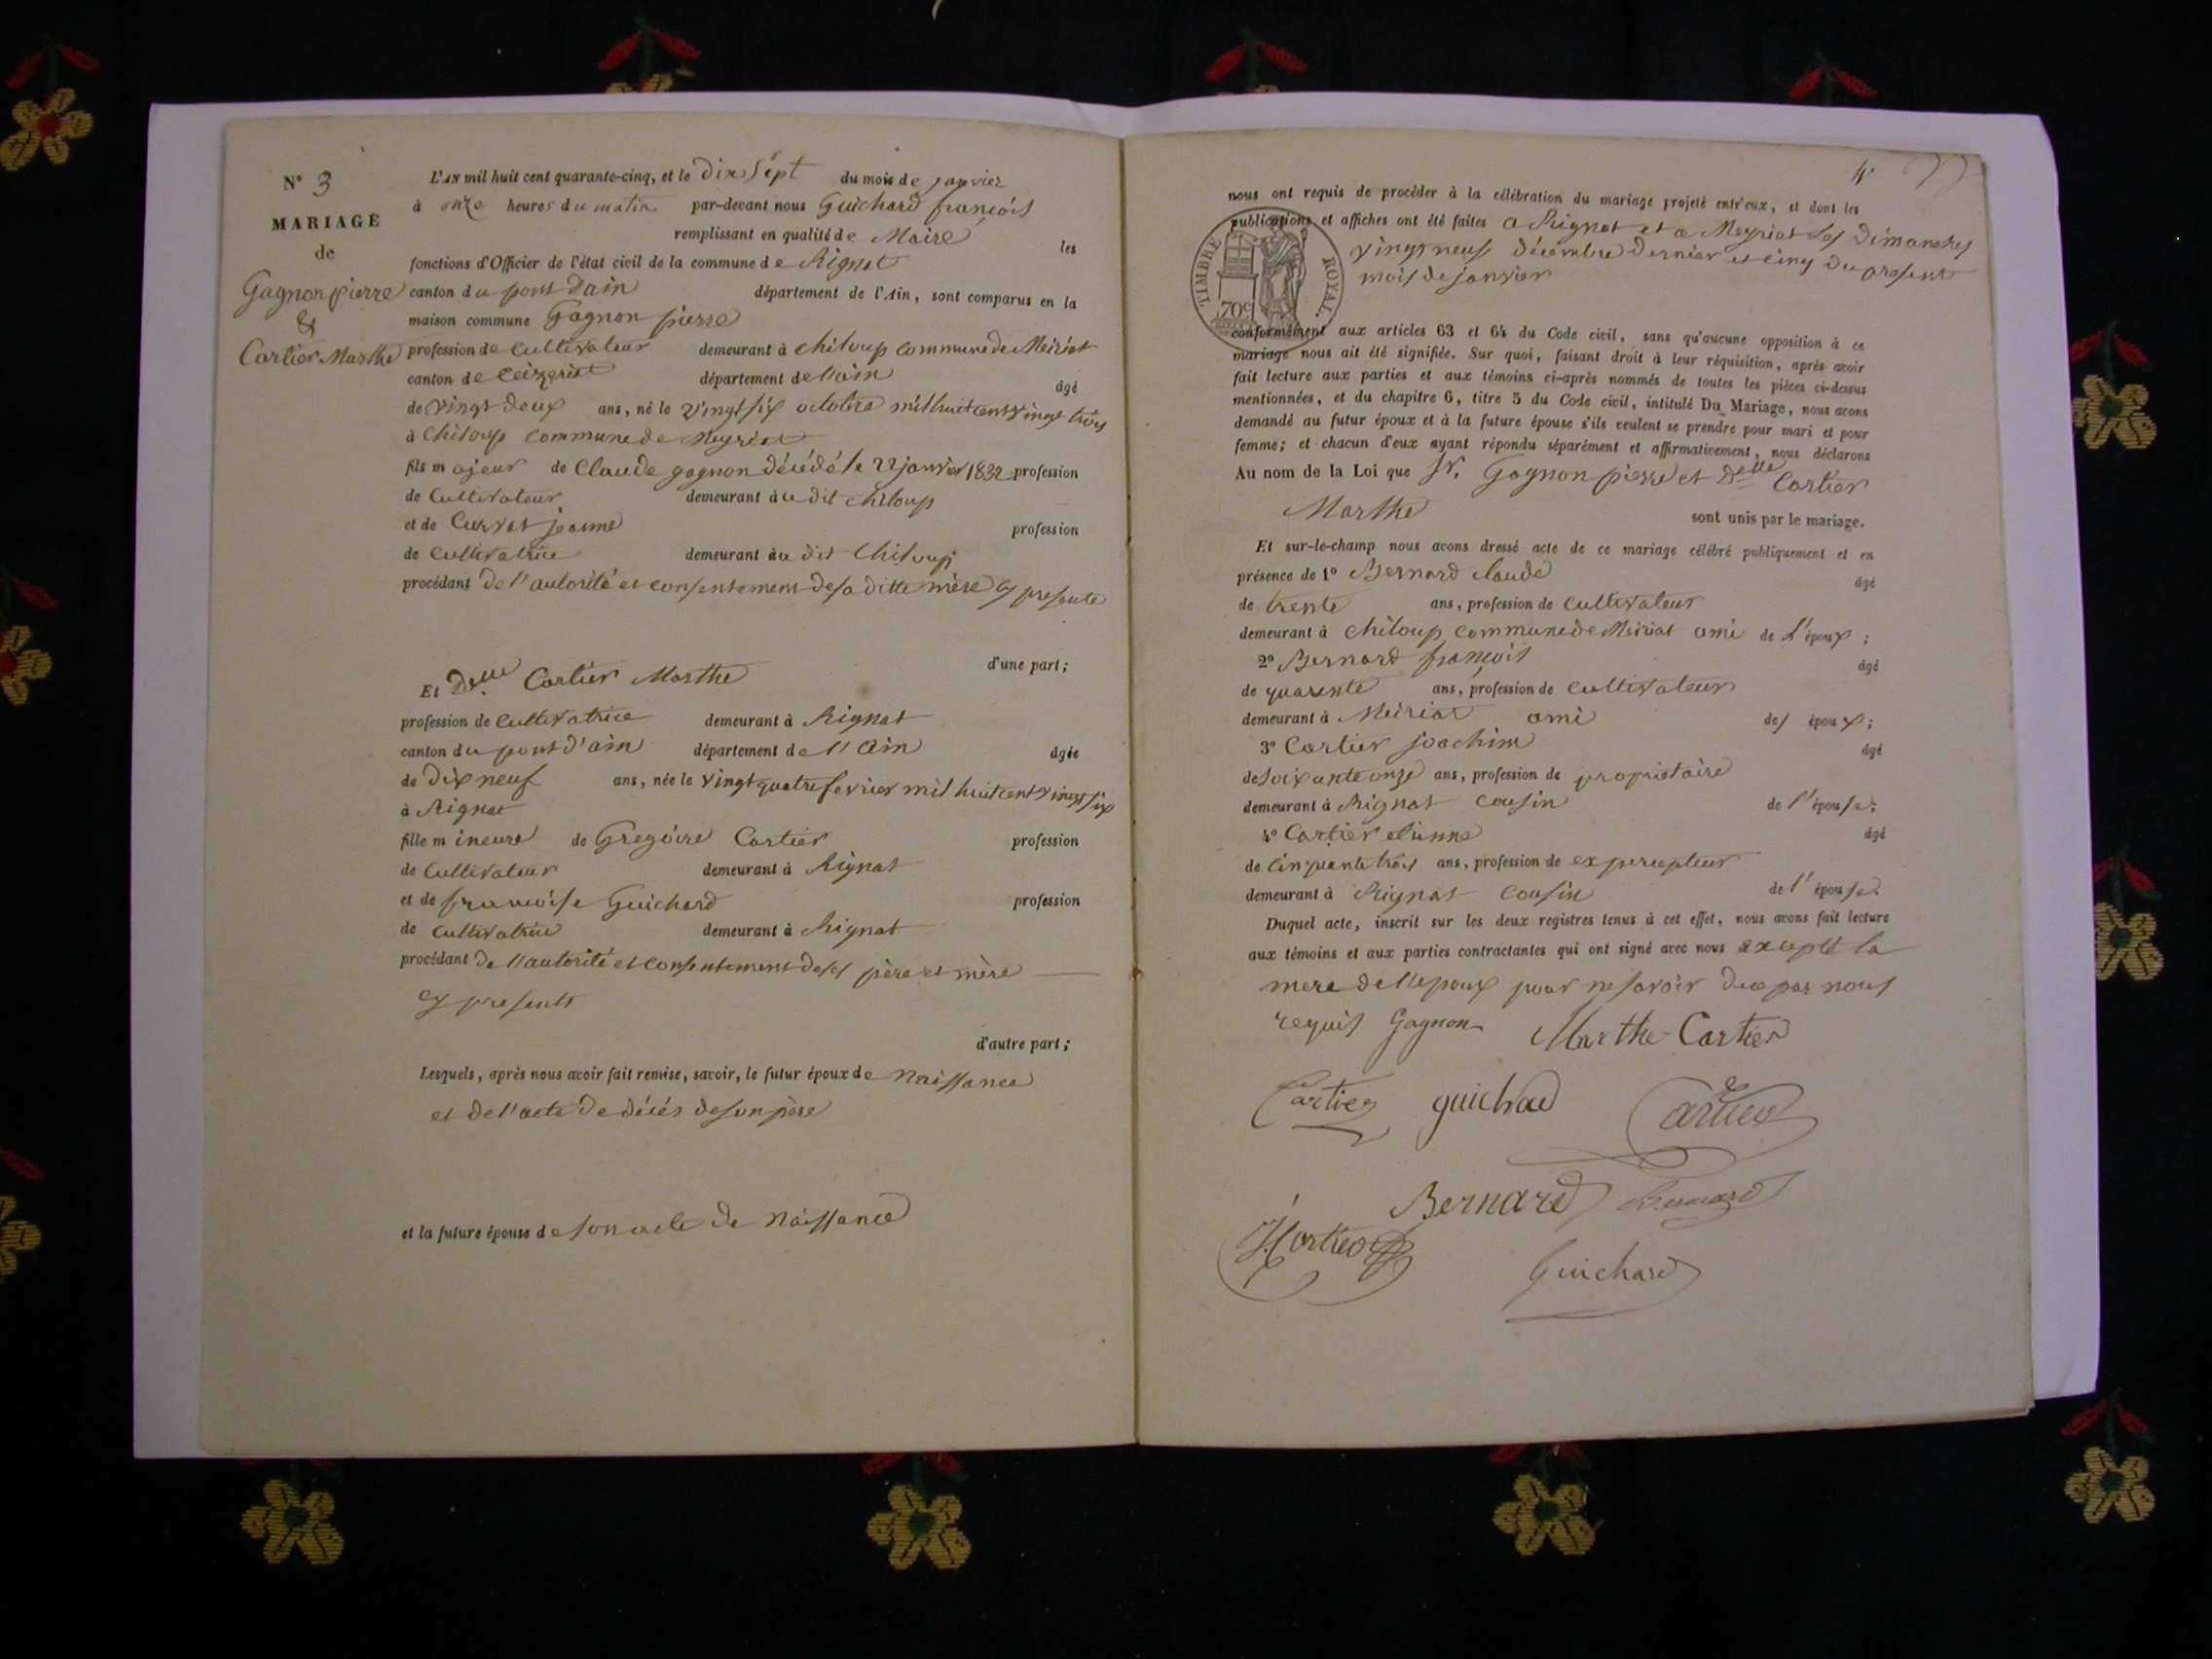 N° 3
MARIAGE
de
Gagnon pierre
&
Cartier Marthe
L'AN mil huit cent quarante-cinq, et le dix sept du mois de janvier
à onze heures du matin par-devant nous Guichard françois
remplissant en qualité de Maire les
fonctions d'Officier de l'état civil de la commune de Rignat
canton du pont dain département de l'Ain, sont comparus en la
maison commune Gagnon pierre
profession de Cultivateur demeurant à chiloup commune de Meiriat
canton de Ceizeriat département de l'ain âgé
de vingt deux ans, né le vingt six octobre mil huit cent vingt trois
à Chiloup commune de Meyriat
fils majeur de Claude gagnon décédé le 22 janvier 1832 profession
de Cultivateur demeurant au dit chiloup
et de Curvat jeanne profession
de Cultivatrice demeurant au dit Chiloup
procédant de l'autorité et consentement de sa ditte mère cy presente
d'une part;
Et Delle Cartier Marthe
profession de Cultivatrice demeurant à Rignat
canton du pont d'ain département de l'Ain âgée
de dix neuf ans, née le vingt quatre fevrier mil huit cent vingt six
à Rignat
fille mineure de Gregoire Cartier profession
de Cultivateur demeurant à Rignat
et de françoise Guichard profession
de Cultivatrice demeurant à Rignat
procédant de l'autorité et consentement de ses père et mère
cy presents
d'autre part;
Lesquels, après nous avoir fait remise, savoir, le futur époux de Naissance
et de l'acte de décés de son père
et la future épouse de son acte de Naissance
nous ont requis de procéder à la célébration du mariage projeté entr'eux, et dont les
publications et affiches ont été faites a Rignat et a Meyriat Les dimanches
vingt neuf décembre dernier et cinq du present
mois de janvier
TIMBRE ROYAL.
70c
conformément aux articles 63 et 64 du Code civil, sans qu'aucune opposition à ce
mariage nous ait été signifiée. Sur quoi, faisant droit à leur réquisition, après avoir
fait lecture aux parties et aux témoins ci-après nommés de toutes les pièces ci-dessus
mentionnées, et du chapitre 6, titre 5 du Code civil, intitulé Du Mariage, nous avons
demandé au futur époux et à la future épouse s'ils veulent se prendre pour mari et pour
femme; et chacun d'eux ayant répondu séparément et affirmativement, nous déclarons
Au nom de la Loi que Sr. Gagnon pierre et Delle Cartier
Marthe sont unis par le mariage.
Et sur-le-champ nous avons dressé acte de ce mariage célébré publiquement et en
présence de 1° Bernard Claude âgé
de trente ans, profession de Cultivateur
demeurant à Chiloup commune de Meiriat ami de L'époux;
2° Bernard françois âgé
de quarente ans, profession de Cultivateur
demeurant à Meiriat ami des époux;
3° Cartier joachim âgé
de Soixante onze ans, profession de propriétaire
demeurant à Rignat cousin de l'épouse;
4° Cartier etienne âgé
de cinquante trois ans, profession de ex percepteur
demeurant à Rignat cousin de l'épouse.
Duquel acte, inscrit sur les deux registres tenus à cet effet, nous avons fait lecture
aux témoins et aux parties contractantes qui ont signé avec nous excepté la
mere de l'epoux pour ne savoir de ce par nous
requis Gagnon Marthe Cartier
Cartier guichard Cartier
Bernard Bernard
Guichard